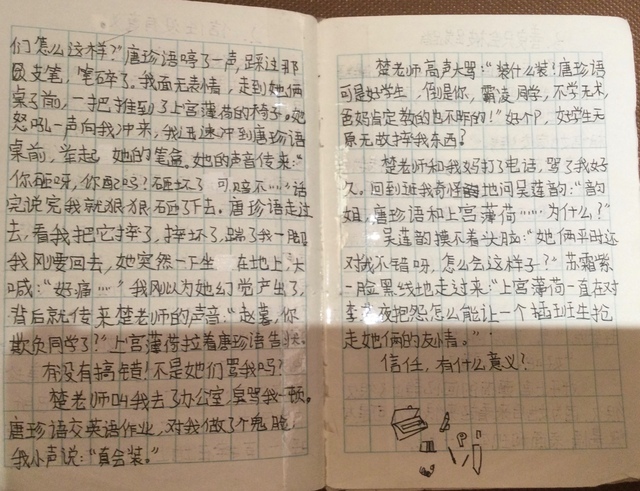 们怎么这样？”唐珍语哼了一声，踩过那
支笔，笔碎了。我面无表情，走到她俩
桌子前，一把推到了上宫薄荷的椅子。她
怒吼一声向我冲来，我迅速冲到唐珍语
桌前，举起她的笔盒。她的声音传来：“
你砸呀，你配吗？砸坏了可赔不……”话
完说完我就狠狠砸了下去。唐珍语走过
去，看我把它摔了，摔坏了，踹了我一脚
我刚要回去，她突然一下坐在地上，大
喊：“好痛……”我刚以为她幻学产出了，
背后就传来楚老师的声音：“赵蔓，你
欺负同学了？”上宫薄荷拉着唐珍语告状。
有没有搞错！不是她们骂我吗？
楚老师叫我去了办公室，臭骂我一顿。
唐珍语交英语作业，对我做了个鬼脸，
我小声说：“真会装。”
楚老师高声大骂：“装什么装！唐珍语
可是好学生，倒是你，霸凌同学，不学无术，
爸妈肯定教的也不咋的！”好个P，好学生无
原无故摔我东西？
楚老师和我妈打了电话，骂了我好
久。回到班我奇怪地问吴莲韵：“韵
姐，唐珍语和上宫薄荷……为什么？”
吴莲韵摸不着头脑：“她俩平时还
对我不错呀，怎么会这样子？”苏霜紫
一脸黑线地走过来：“上宫薄荷一直在对
夜抱怨怎么能让一个插班生抢
走她俩的友情。”
信任，有什么意义？